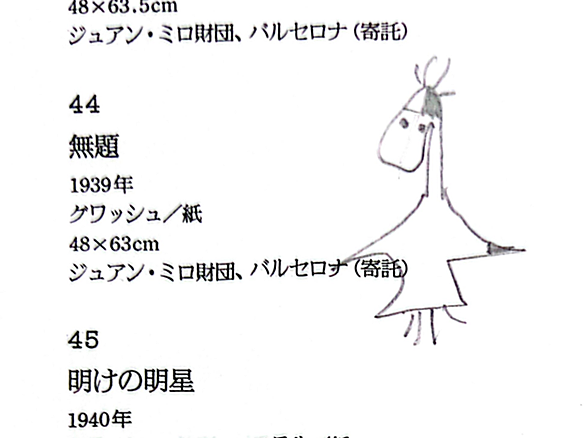 48×63.5cm
ジュアン・ミロ財団、バルセロナ（寄託）
44
無題
1939年
グワッシュ／紙
48×63cm
ジュアン・ミロ財団、バルセロナ（寄託）
45
明けの明星
1940年